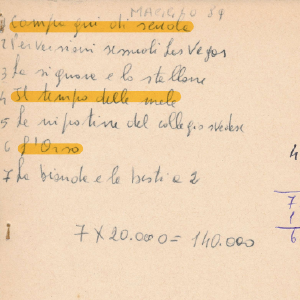 MAGGIO 89
1 Compagni di scuola
2 Perversioni sessuali Las Vegas
3 La signora e lo stallone
4 Il tempo delle mele
5 Le nipotine del collegio svedese
6 L'Orso
7 La bionda e la bestia 2
7 X 20.000 = 140.000
4
7
6